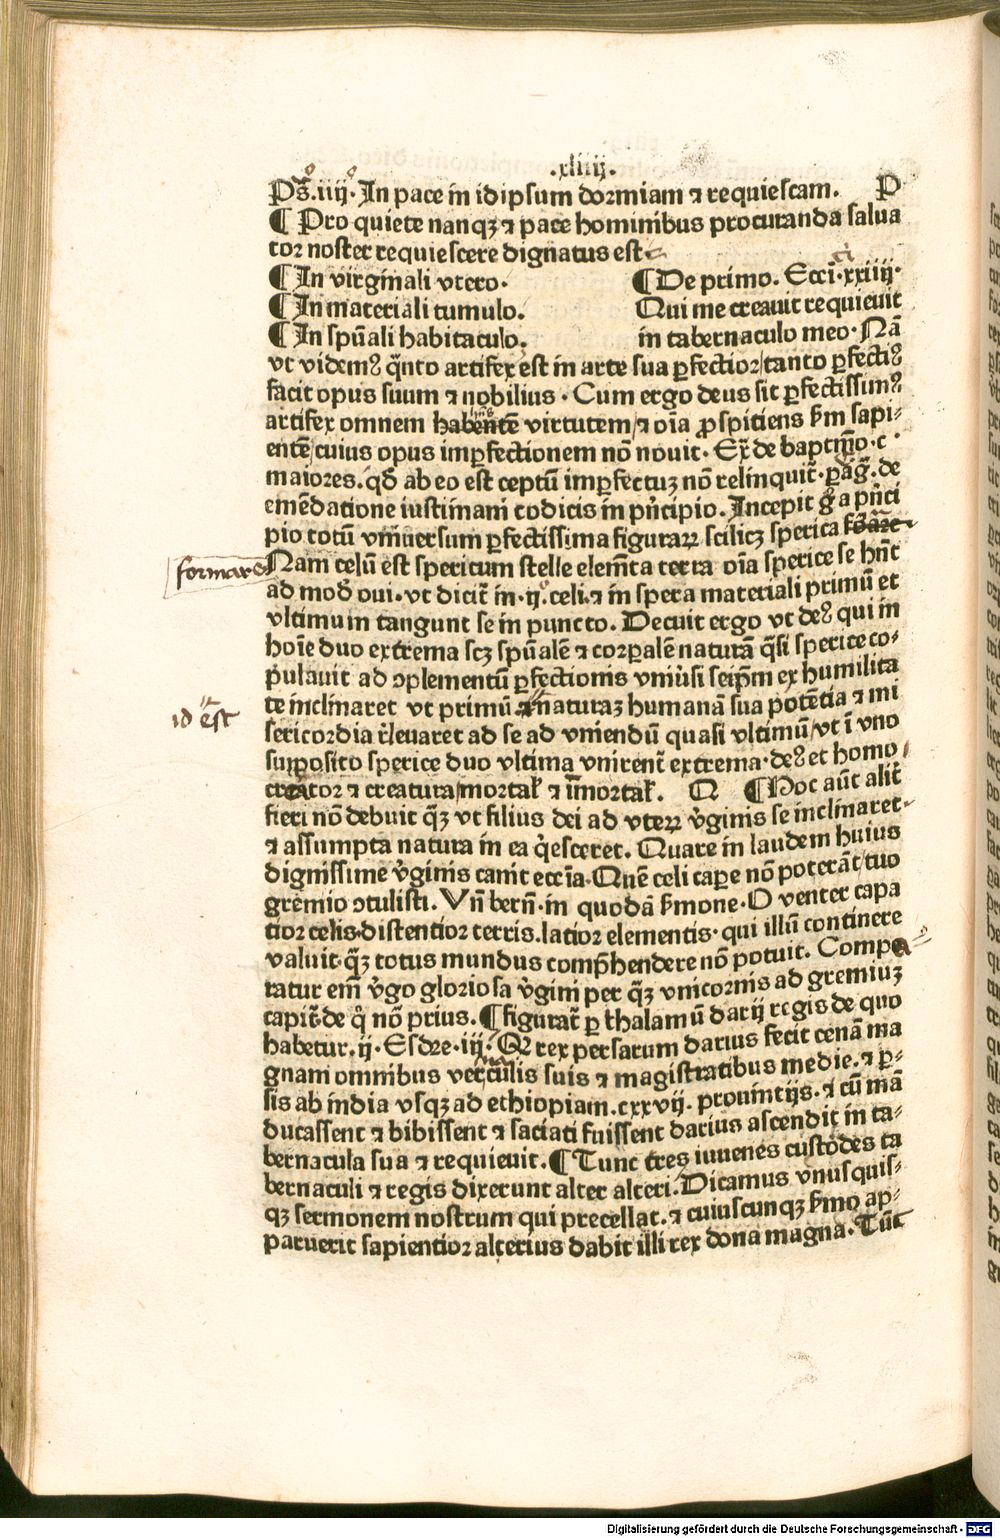 .xliiij.
Ps̄.iiij. In pace in idipsum dormiam ⁊ requiescam. P
¶ Pro quiete nanqꝫ ⁊ pace hominibus procuranda salua
tor noster requiescere dignatus est
¶ In virginali vtero. ¶ De primo. Ecci.xxiiij.
¶ In materiali tumulo. Qui me creauit requieuit
¶ In spūali habitaculo. in tabernaculo meo. Nā
vt videmꝰ q̄nto artifex est in arte sua ꝑfectior/tanto ꝑfectiꝰ
facit opus suum ⁊ nobilius. Cum ergo deus sit ꝑfectissimꝰ
artifex omnem habentē virtutem/⁊ oīa ꝓspitiens f̄m sapi-
entē/cuius opus imꝑfectionem nō nouit. Ex̄ de baptm̄o.c.
maiores. qđ ab eo est ceptū imꝑfectuꝫ nō relinquit̄. ꝑāḡ. de
emēdatione iustiniani codicis in pṅcipio. Incepit g̊ a pṅci
pio totū vniuersum ꝑfectissima figuraꝝ scilicꝫ sperica foꝛ̄are
formare
Nam celū est spericum stelle elemēta terra oīa sperice se hn̄t
ad modū oui. vt dicit̄ in.ij. celi. ⁊ in spera materiali primū et
vltimum tangunt se in puncto. Decuit ergo vt deꝰ qui in
hoīe duo extrema scꝫ spūalē ⁊ corꝑalē naturā q̄si sperice co-
pulauit ad ↄplementū ꝑfectionis vniūsi seip̄m ex humilita
te inclinaret vt primū naturaꝫ humanā sua potētia ⁊ mi
id est
sericordia r̄leuaret ad se ad vniendū quasi vltimū/vt ī vno
supposito sperice duo vltima vnirent̄ extrema. deꝰ et homo
creator ⁊ creatura/mortał ⁊ īmortał. Q ¶ Hoc aūt alit̄
fieri nō debuit q̄ꝫ vt filius dei ad vteꝝ v̄ginis se inclinaret
⁊ assumpta natura in ea q̇esceret. Quare in laudem huius
dignissime v̄ginis canit ecc̄ia. Quē celi capere nō poterāt/tuo
gremio ↄtulisti. Vn̄ bern̄. in quodā f̄mone. O venter capa
tior celis.distentior terris.latior elementis. qui illū continere
valuit.q̄ꝫ totus mundus comp̄hendere nō potuit. Compa
ratur em̄ v̄go gloriosa v̄gini per q̄ꝫ vnicornis ad gremiuꝫ
capit̄.de q̊ nō prius. ¶ figurat̄ ꝑ thalamū darij regis de quo
habetur.ij. Esdre.iij. Qꝛ rex persarum darius fecit cenā ma
gnam omnibus vernaculis suis ⁊ magistratibus medie. ⁊ ꝑ-
sis ab india vsqꝫ ad ethiopiam.cxxvij. prouintijs. ⁊ cū mā
ducassent ⁊ bibissent ⁊ saciati fuissent darius ascendit in ta-
bernacula sua ⁊ requieuit. ¶ Tunc tres iuuenes custodes ta
bernaculi ⁊ regis dixerunt alter alteri. Dicamus vnusquis-
qꝫ sermonem nostrum qui precellat. ⁊ cuiuscunqꝫ f̄mo ap-
paruerit sapientior alterius dabit illi rex dona magna. Tūc
Digitalisierung gefördert durch die Deutsche Forschungsgemeinschaft - DFG